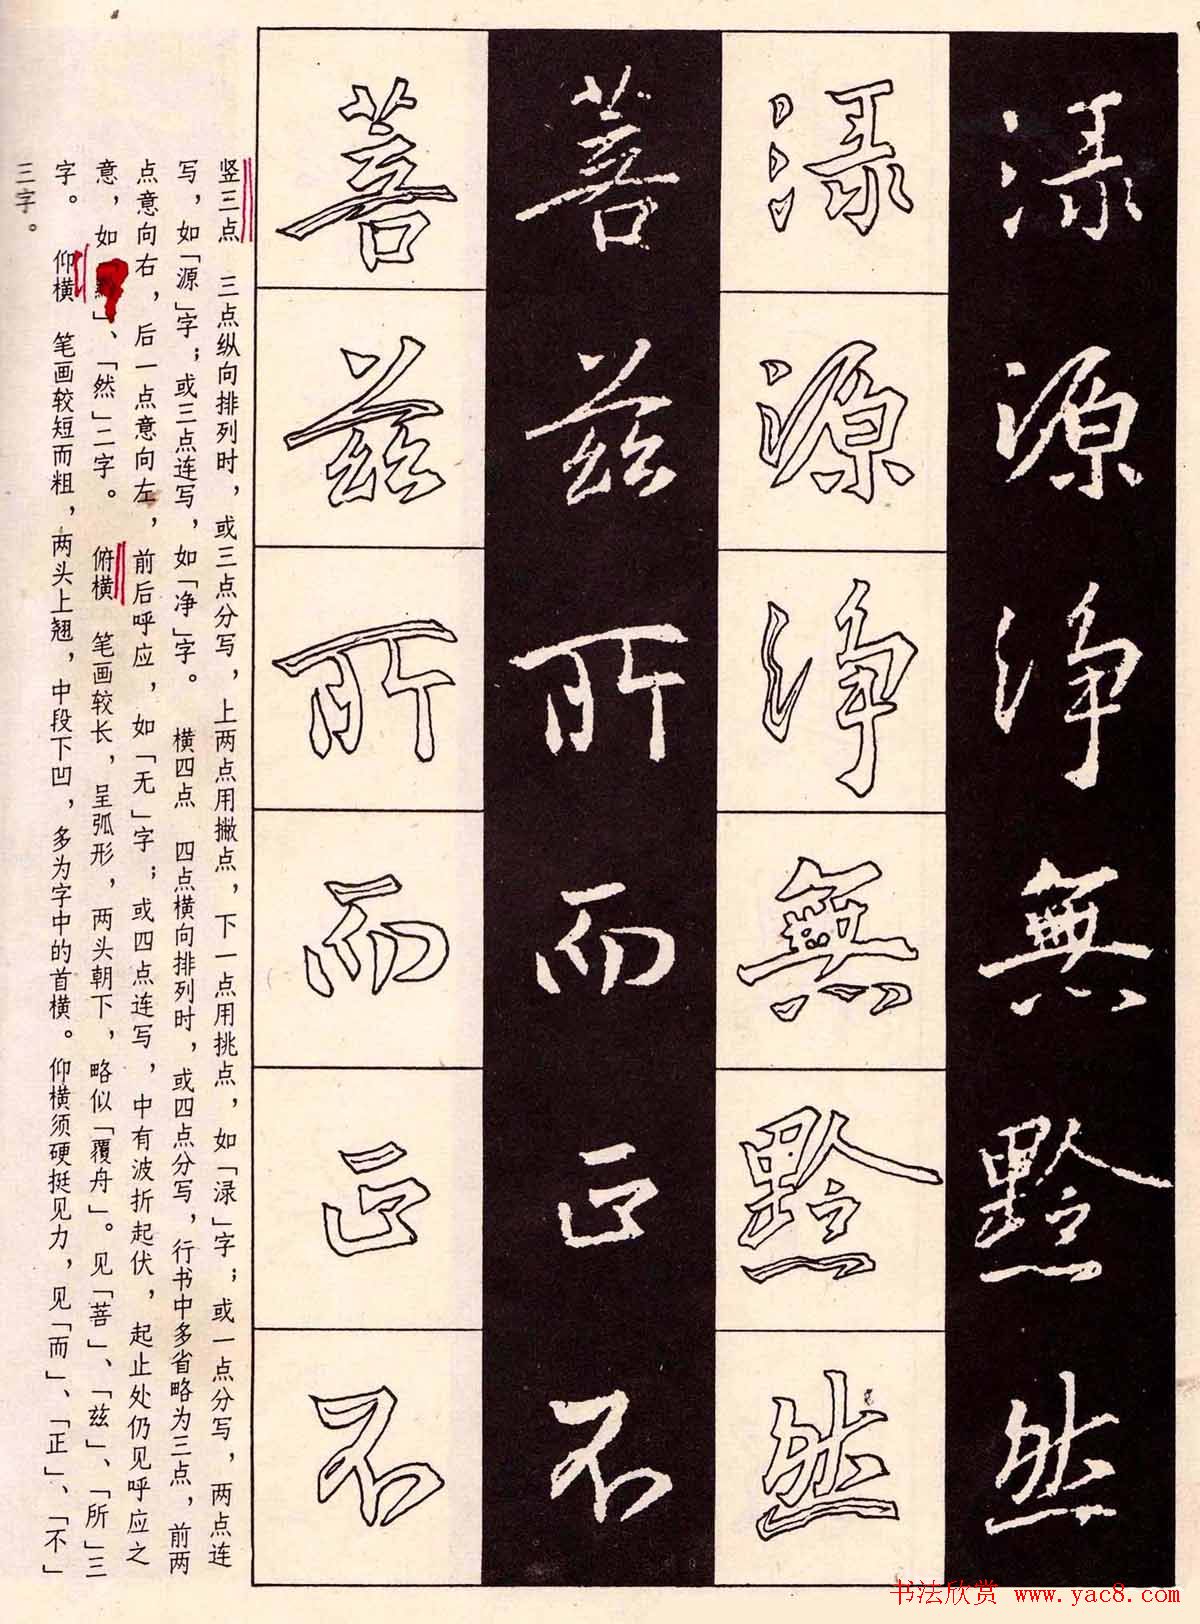 渌源淨無黔然
渌源淨無黔然
菩兹所而正不
菩兹所而正不
竖三点　三点纵向排列时，或三点分写，上两点用撇点，下一点用挑点，如「渌」字；或一点分写，两点连
写，如「源」字；或三点连写，如「净」字。　横四点　四点横向排列时，或四点分写，行书中多省略为三点，前两
点意向右，后一点意向左，前后呼应，如「无」字；或四点连写，中有波折起伏，起止处仍见呼应之
意，如「」、「然」二字。　俯横　笔画较长，呈弧形，两头朝下，略似「覆舟」。见「菩」、「兹」、「所」三
字。　仰横　笔画较短而粗，两头上翘，中段下凹，多为字中的首横。仰横须硬挺见力，见「而」、「正」、「不」
三字。
书法欣赏 www.yac8.com